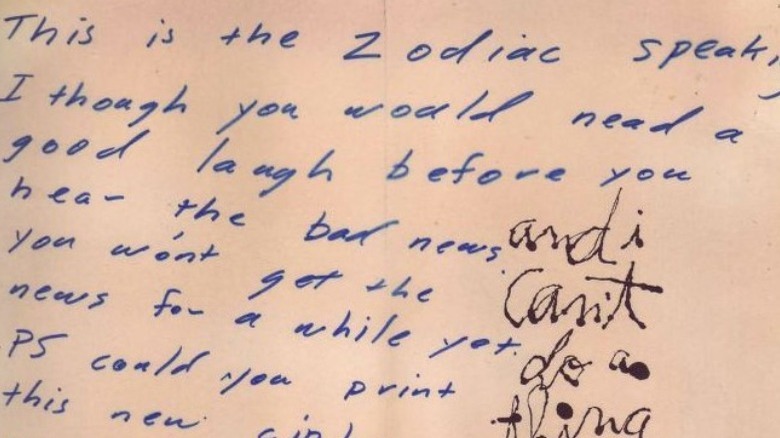 This is the Zodiac speak
I though you would nead a
good laugh before you
hear the bad news
you won't get the
news for a while yet.
PS could you print
this new
and i
can't
do a
thing